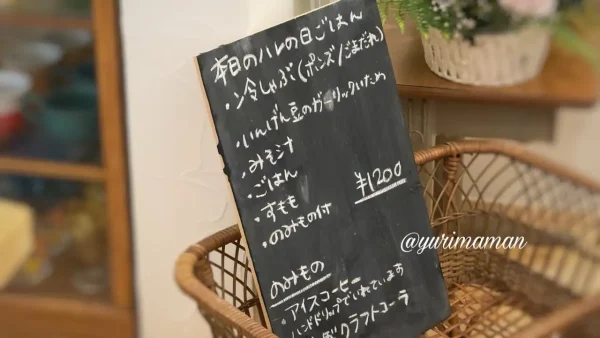 本日のハレの日ごはん
・冷しゃぶ(ポンズ/ごまだれ)
・いんげん豆のガーリックいため
・みそ汁
・ごはん
・すもも
・のみもの付
¥1200
のみもの
・アイスコーヒー
ハンドドリップでいれています
クラフトコーラ
@yurimaman